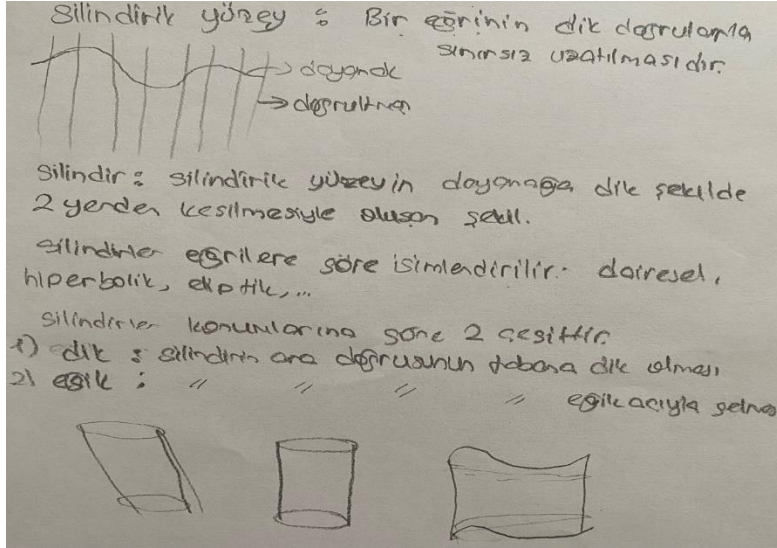 Silindirik yüzey : Bir eğrinin dik doğrularla
sınırsız uzatılmasıdır.
→ dayanak
→ doğrultman
Silindir : silindirik yüzeyin dayanağa dik şekilde
2 yerden kesilmesiyle oluşan şekil.
silindirler eğrilere göre isimlendirilir. dairesel,
hiperbolik, eliptik,...
silindirler konumlarına göre 2 çeşittir
1) dik : silindirin ana doğrusunun tabana dik olması
2) eğik : " " " " eğik açıyla gelmes